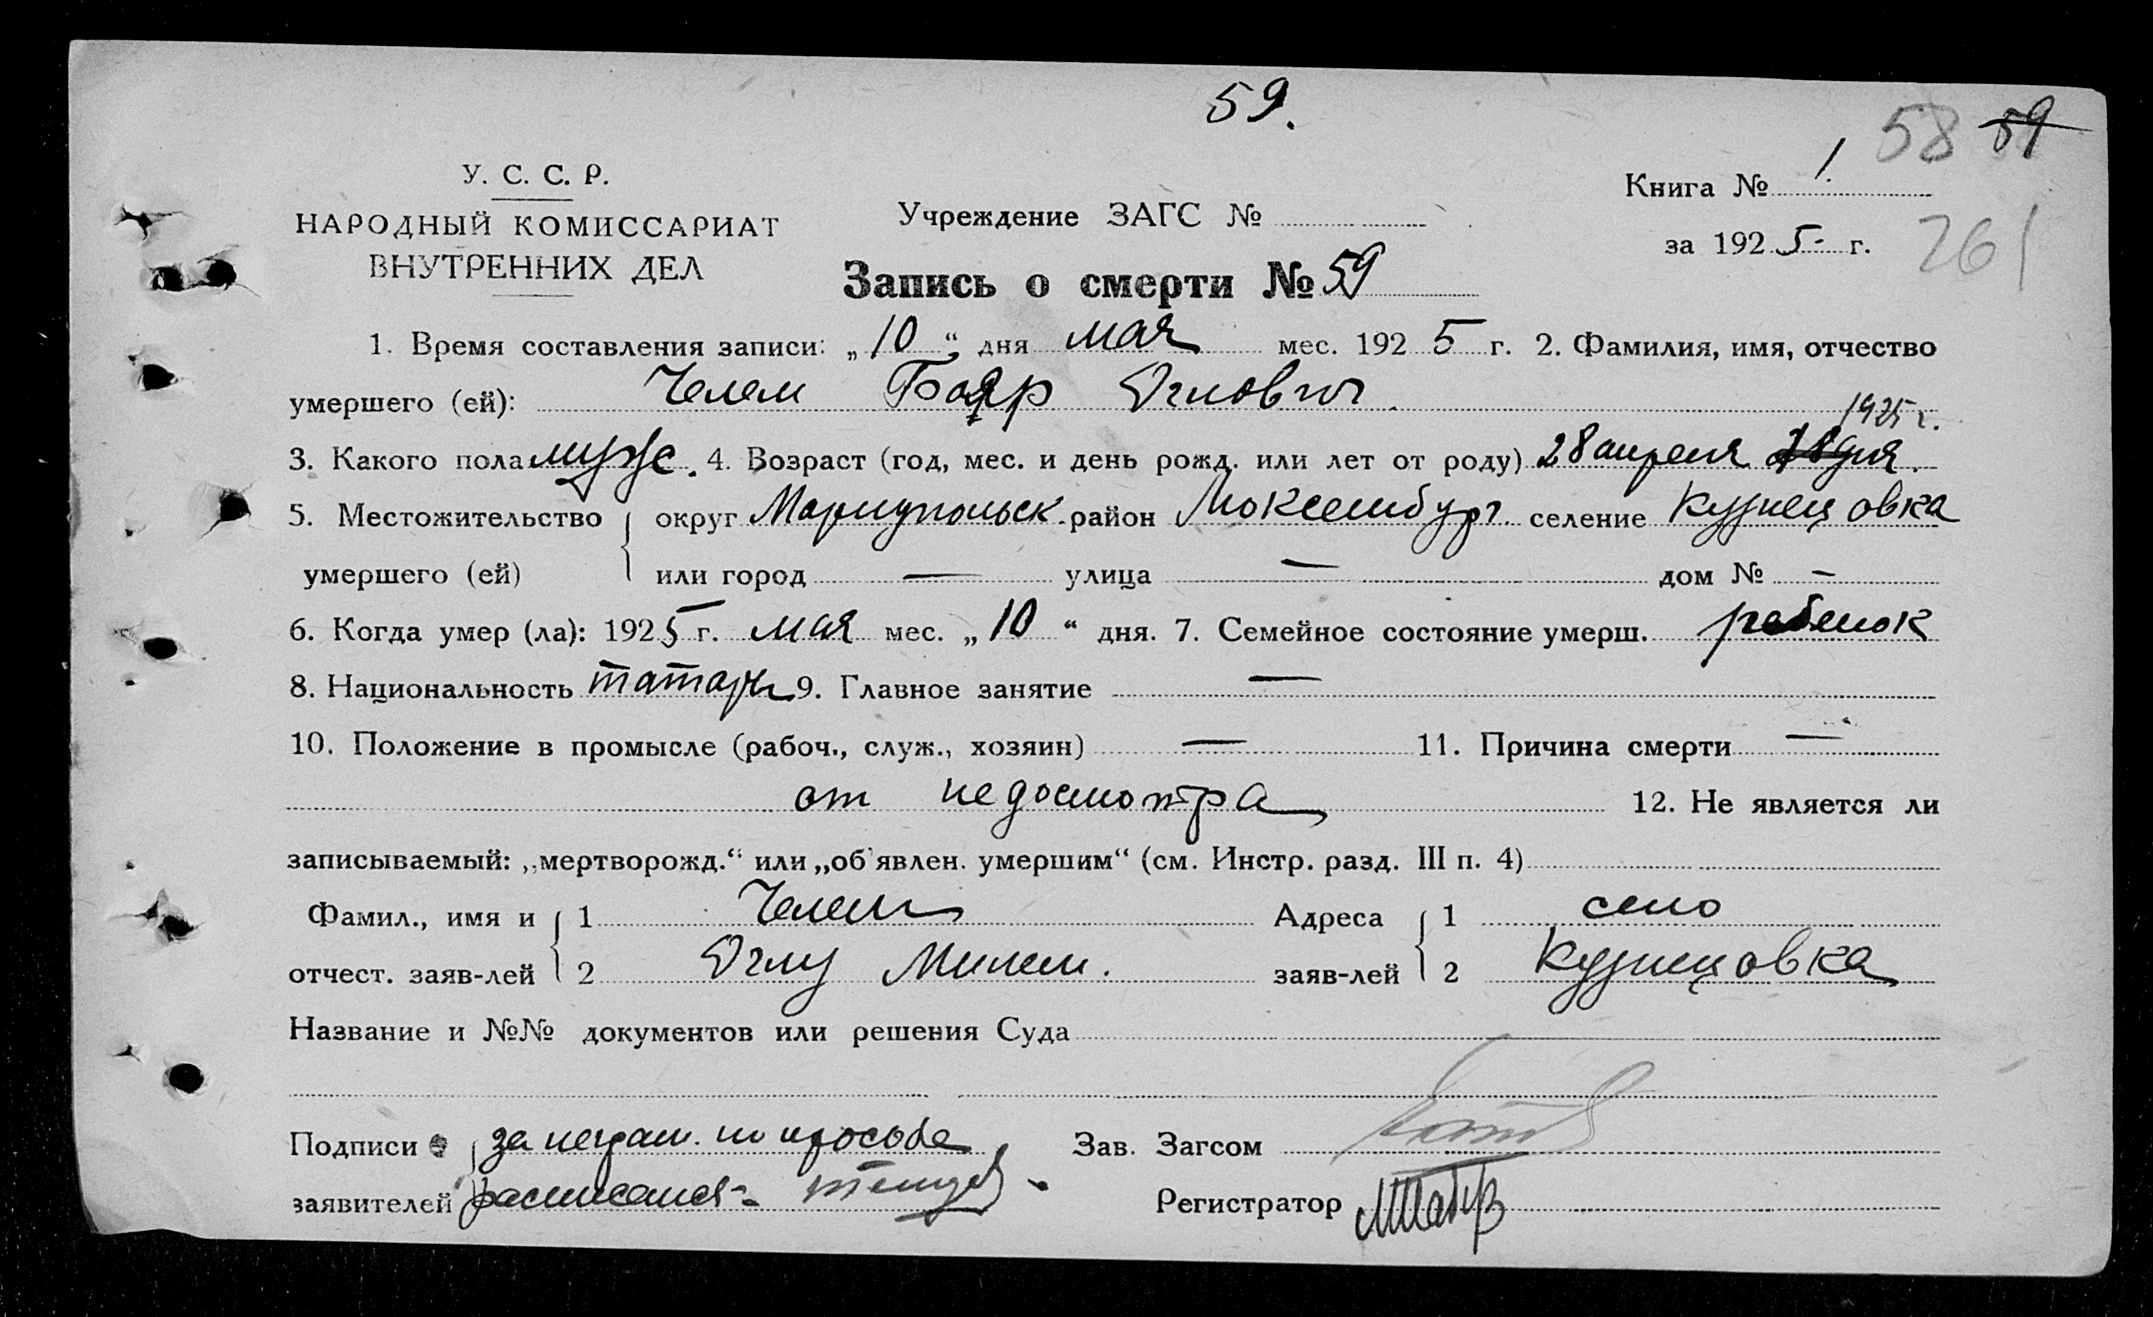 59.
58 59
У. С. С. Р.
НАРОДНЫЙ КОМИССАРИАТ
ВНУТРЕННИХ ДЕЛ
Учреждение ЗАГС №
Книга № 1.
за 1925 г.
261
Запись о смерти № 59
1. Время составления записи: „10“ дня мая мес. 1925 г. 2. Фамилия, имя, отчество
умершего (ей): Челем Оглович
1925 г.
3. Какого пола муж. 4. Возраст (год, мес. и день рожд. или лет от роду) 28 апреля
5. Местожительство округ Мариупольск. район селение Кузнецовка
умершего (ей) или город — улица — дом № —
6. Когда умер (ла): 1925 г. мая мес. „10“ дня. 7. Семейное состояние умерш. ребенок
8. Национальность 9. Главное занятие —
10. Положение в промысле (рабоч., служ., хозяин) — 11. Причина смерти —
от недосмотра 12. Не является ли
записываемый: „мертворожд.“ или „об'явлен. умершим“ (см. Инстр. разд. III п. 4)
Фамил., имя и 1 Челем Адреса 1 село
отчест. заяв-лей 2 Оглу заяв-лей 2 Кузнецовка
Название и №№ документов или решения Суда
Подписи за неграм. по просьбе Зав. Загсом
заявителей расписался Регистратор